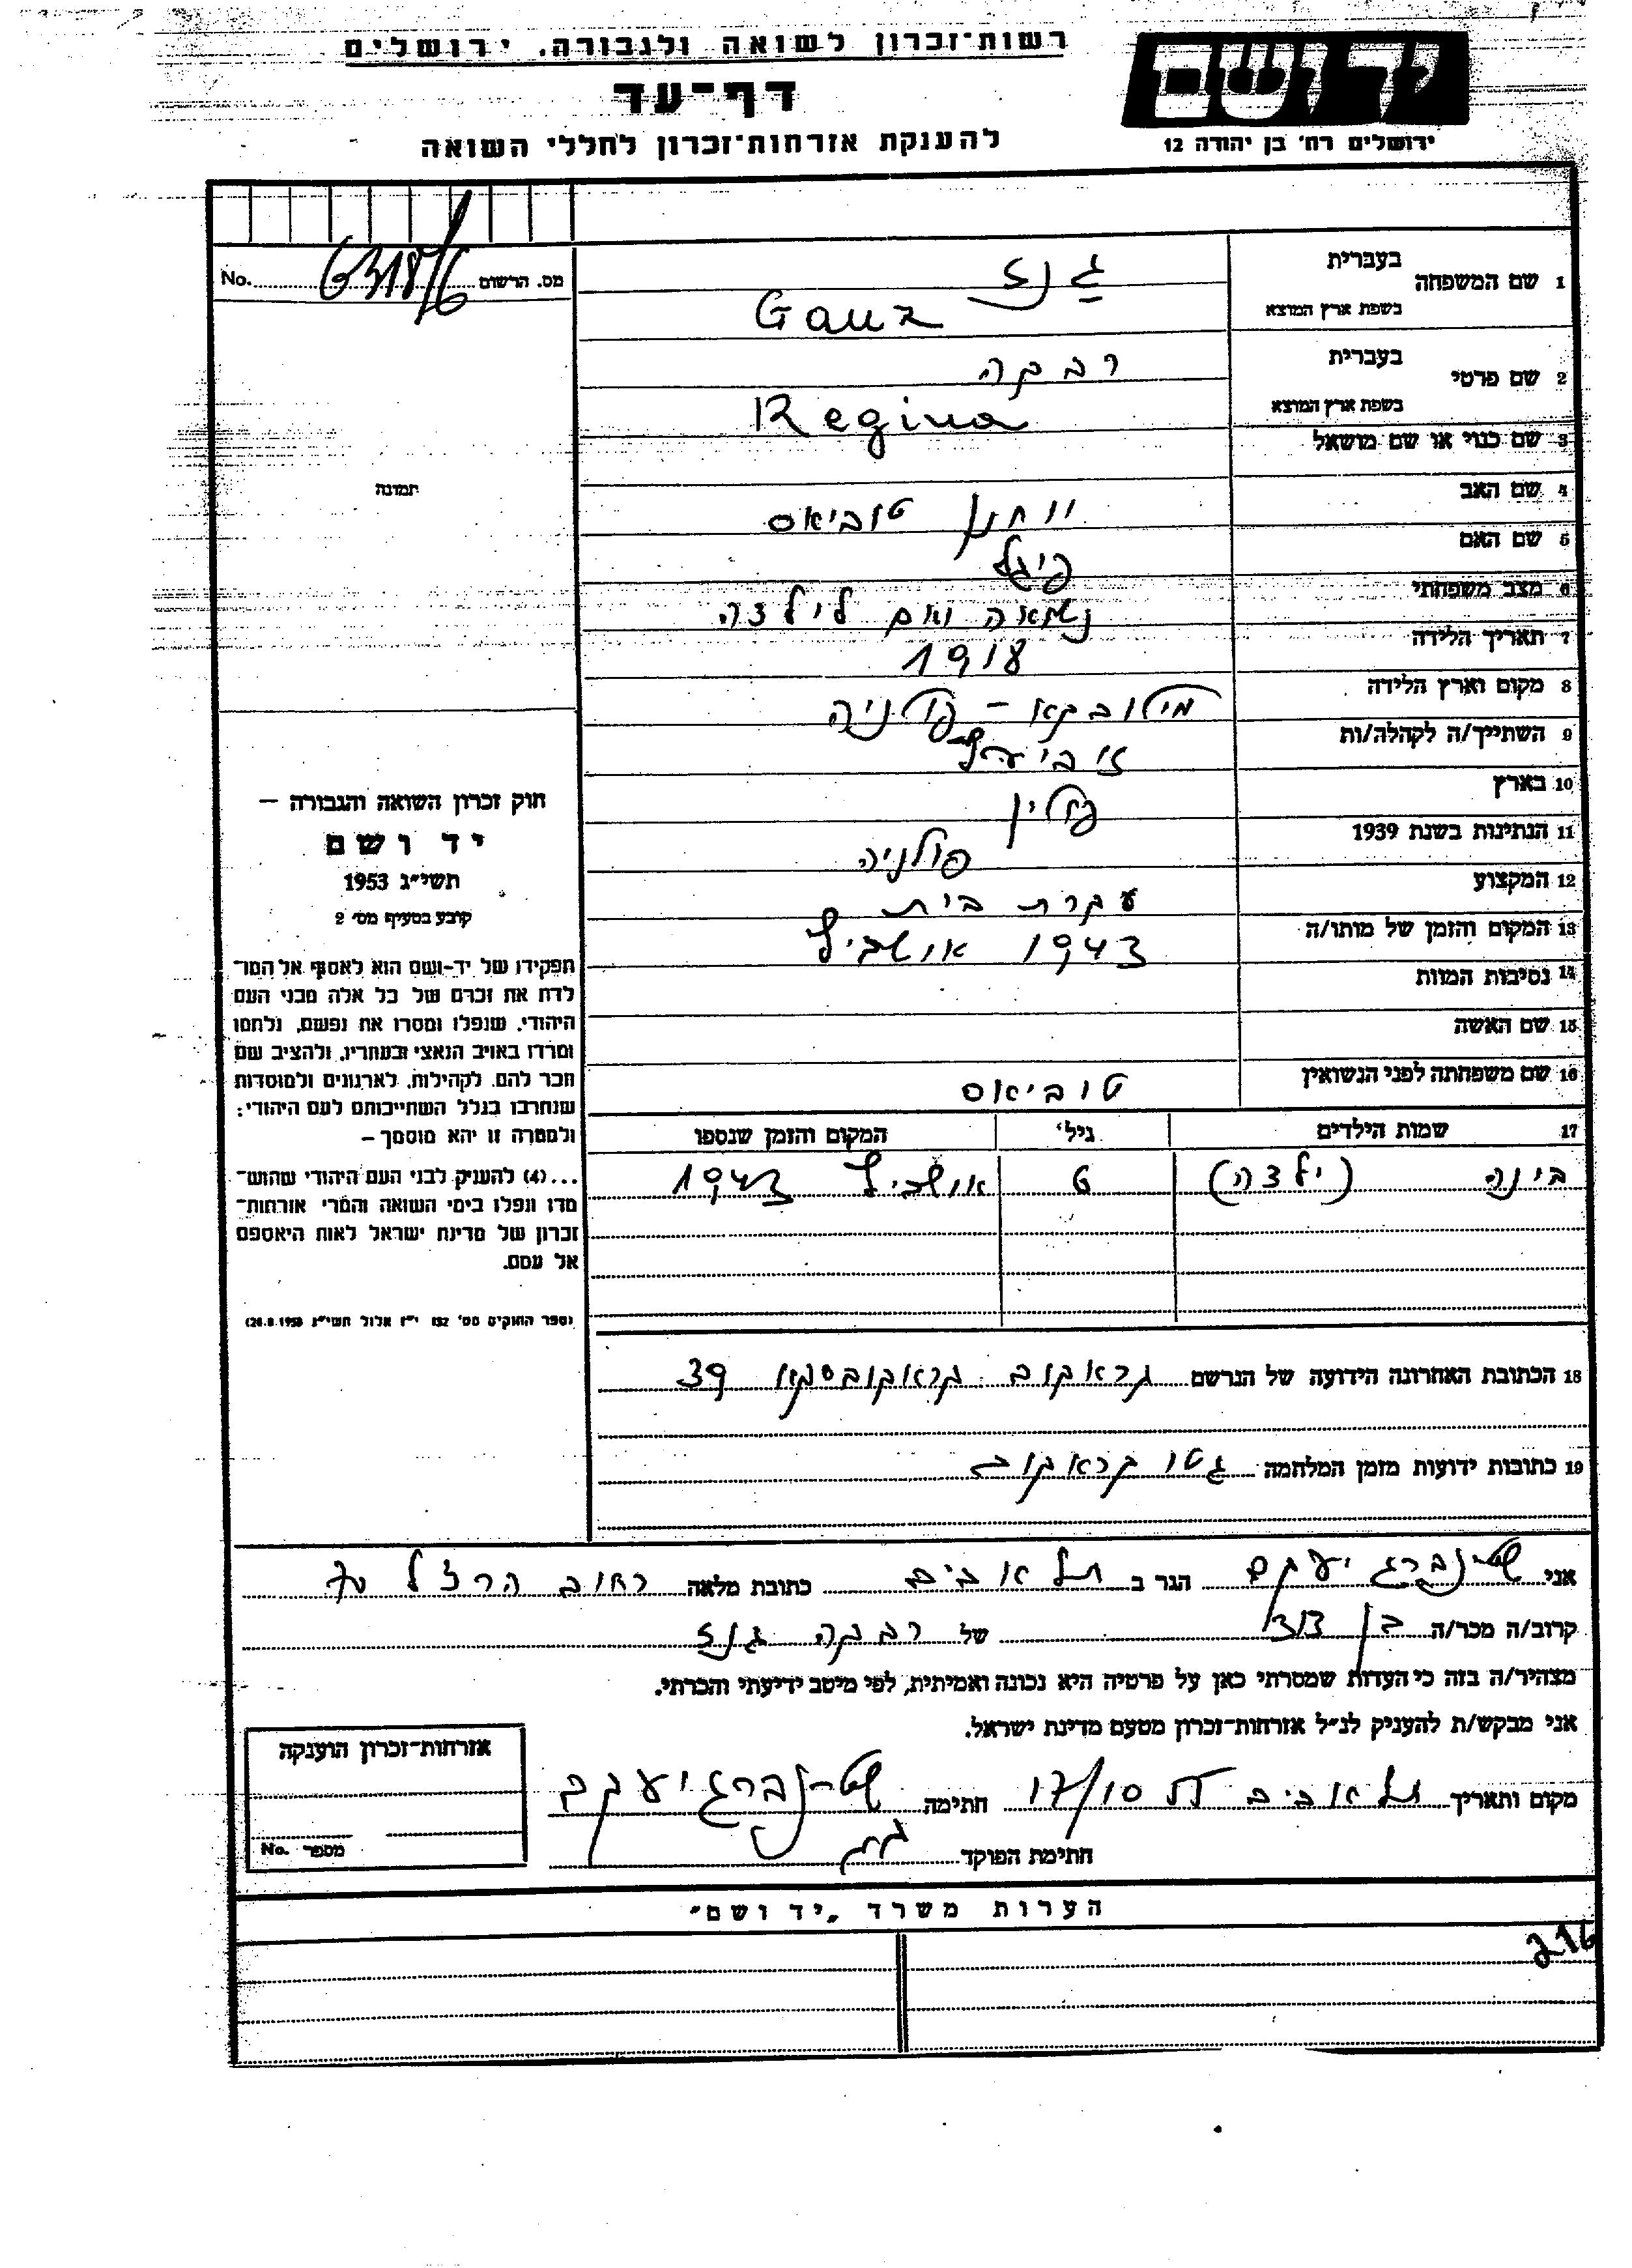 רשות־זכרון לשואה ולגבורה. ירושלים
דף־עד
להענקת אזרחות־זכרון לחללי השואה
ידושם
ירושלים רח' בן יהודה 12
No. 6318/6 מס. הרשום
1 שם המשפחה בעברית גנז
בשפת ארץ המוצא Ganz
2 שם פרטי בעברית רבקה
בשפת ארץ המוצא Regina
3 שם כנוי או שם מושאל
4 שם האב יוחנן טוביאס
5 שם האם פיגל
6 מצב משפחתי נשואה ואם לילדה
7 תאריך הלידה 1918
8 מקום וארץ הלידה מילובקא – פולניה
9 השתייך/ה לקהלה/ות
10 בארץ פולין
11 הנתינות בשנת 1939 פולניה
12 המקצוע עקרת בית
13 המקום והזמן של מותו/ה 1943 אושביץ
14 נסיבות המוות
15 שם האשה
16 שם משפחתה לפני הנשואין טוביאס
17 שמות הילדים גיל' המקום והזמן שנספו
בינה (ילדה) 6 אושביץ 1943
18 הכתובת האחרונה הידועה של הנרשם קראקוב קראקובסקא 39
19 כתובות ידועות מזמן המלחמה גטו קראקוב
תמונה
חוק זכרון השואה והגבורה –
יד ושם
תשי״ג 1953
קובע בסעיף מס׳ 2
תפקידו של יד-ושם הוא לאסוף אל המו־
לדת את זכרם של כל אלה מבני העם
היהודי, שנפלו ומסרו את נפשם, נלחמו
ומרדו באויב הנאצי ובעוזריו, ולהציב שם
וזכר להם, לקהילות, לארגונים ולמוסדות
שנחרבו בגלל השתייכותם לעם היהודי:
ולמטרה זו יהא מוסמך –
...(4) להעניק לבני העם היהודי שהושׁ־
מדו ונפלו בימי השואה והמרי אזרחות־
זכרון של מדינת ישראל לאות היאספם
אל עמם.
(ספר החוקים מס׳ 132 י״ז אלול תשי״ג 28.8.1953)
אני שטינברג יעקב הגר ב תל אביב כתובת מלאה רחוב הרצל 70
קרוב/ה מכר/ה בן דוד של רבקה גנז
מצהיר/ה בזה כי העדות שמסרתי כאן על פרטיה היא נכונה ואמיתית, לפי מיטב ידיעתי והכרתי.
אני מבקש/ת להעניק לנ״ל אזרחות־זכרון מטעם מדינת ישראל.
מקום ותאריך תל אביב 17/10 חתימה שטינברג יעקב
חתימת הפוקד
אזרחות־זכרון הוענקה
No. מספר
הערות משרד „יד ושם״
216